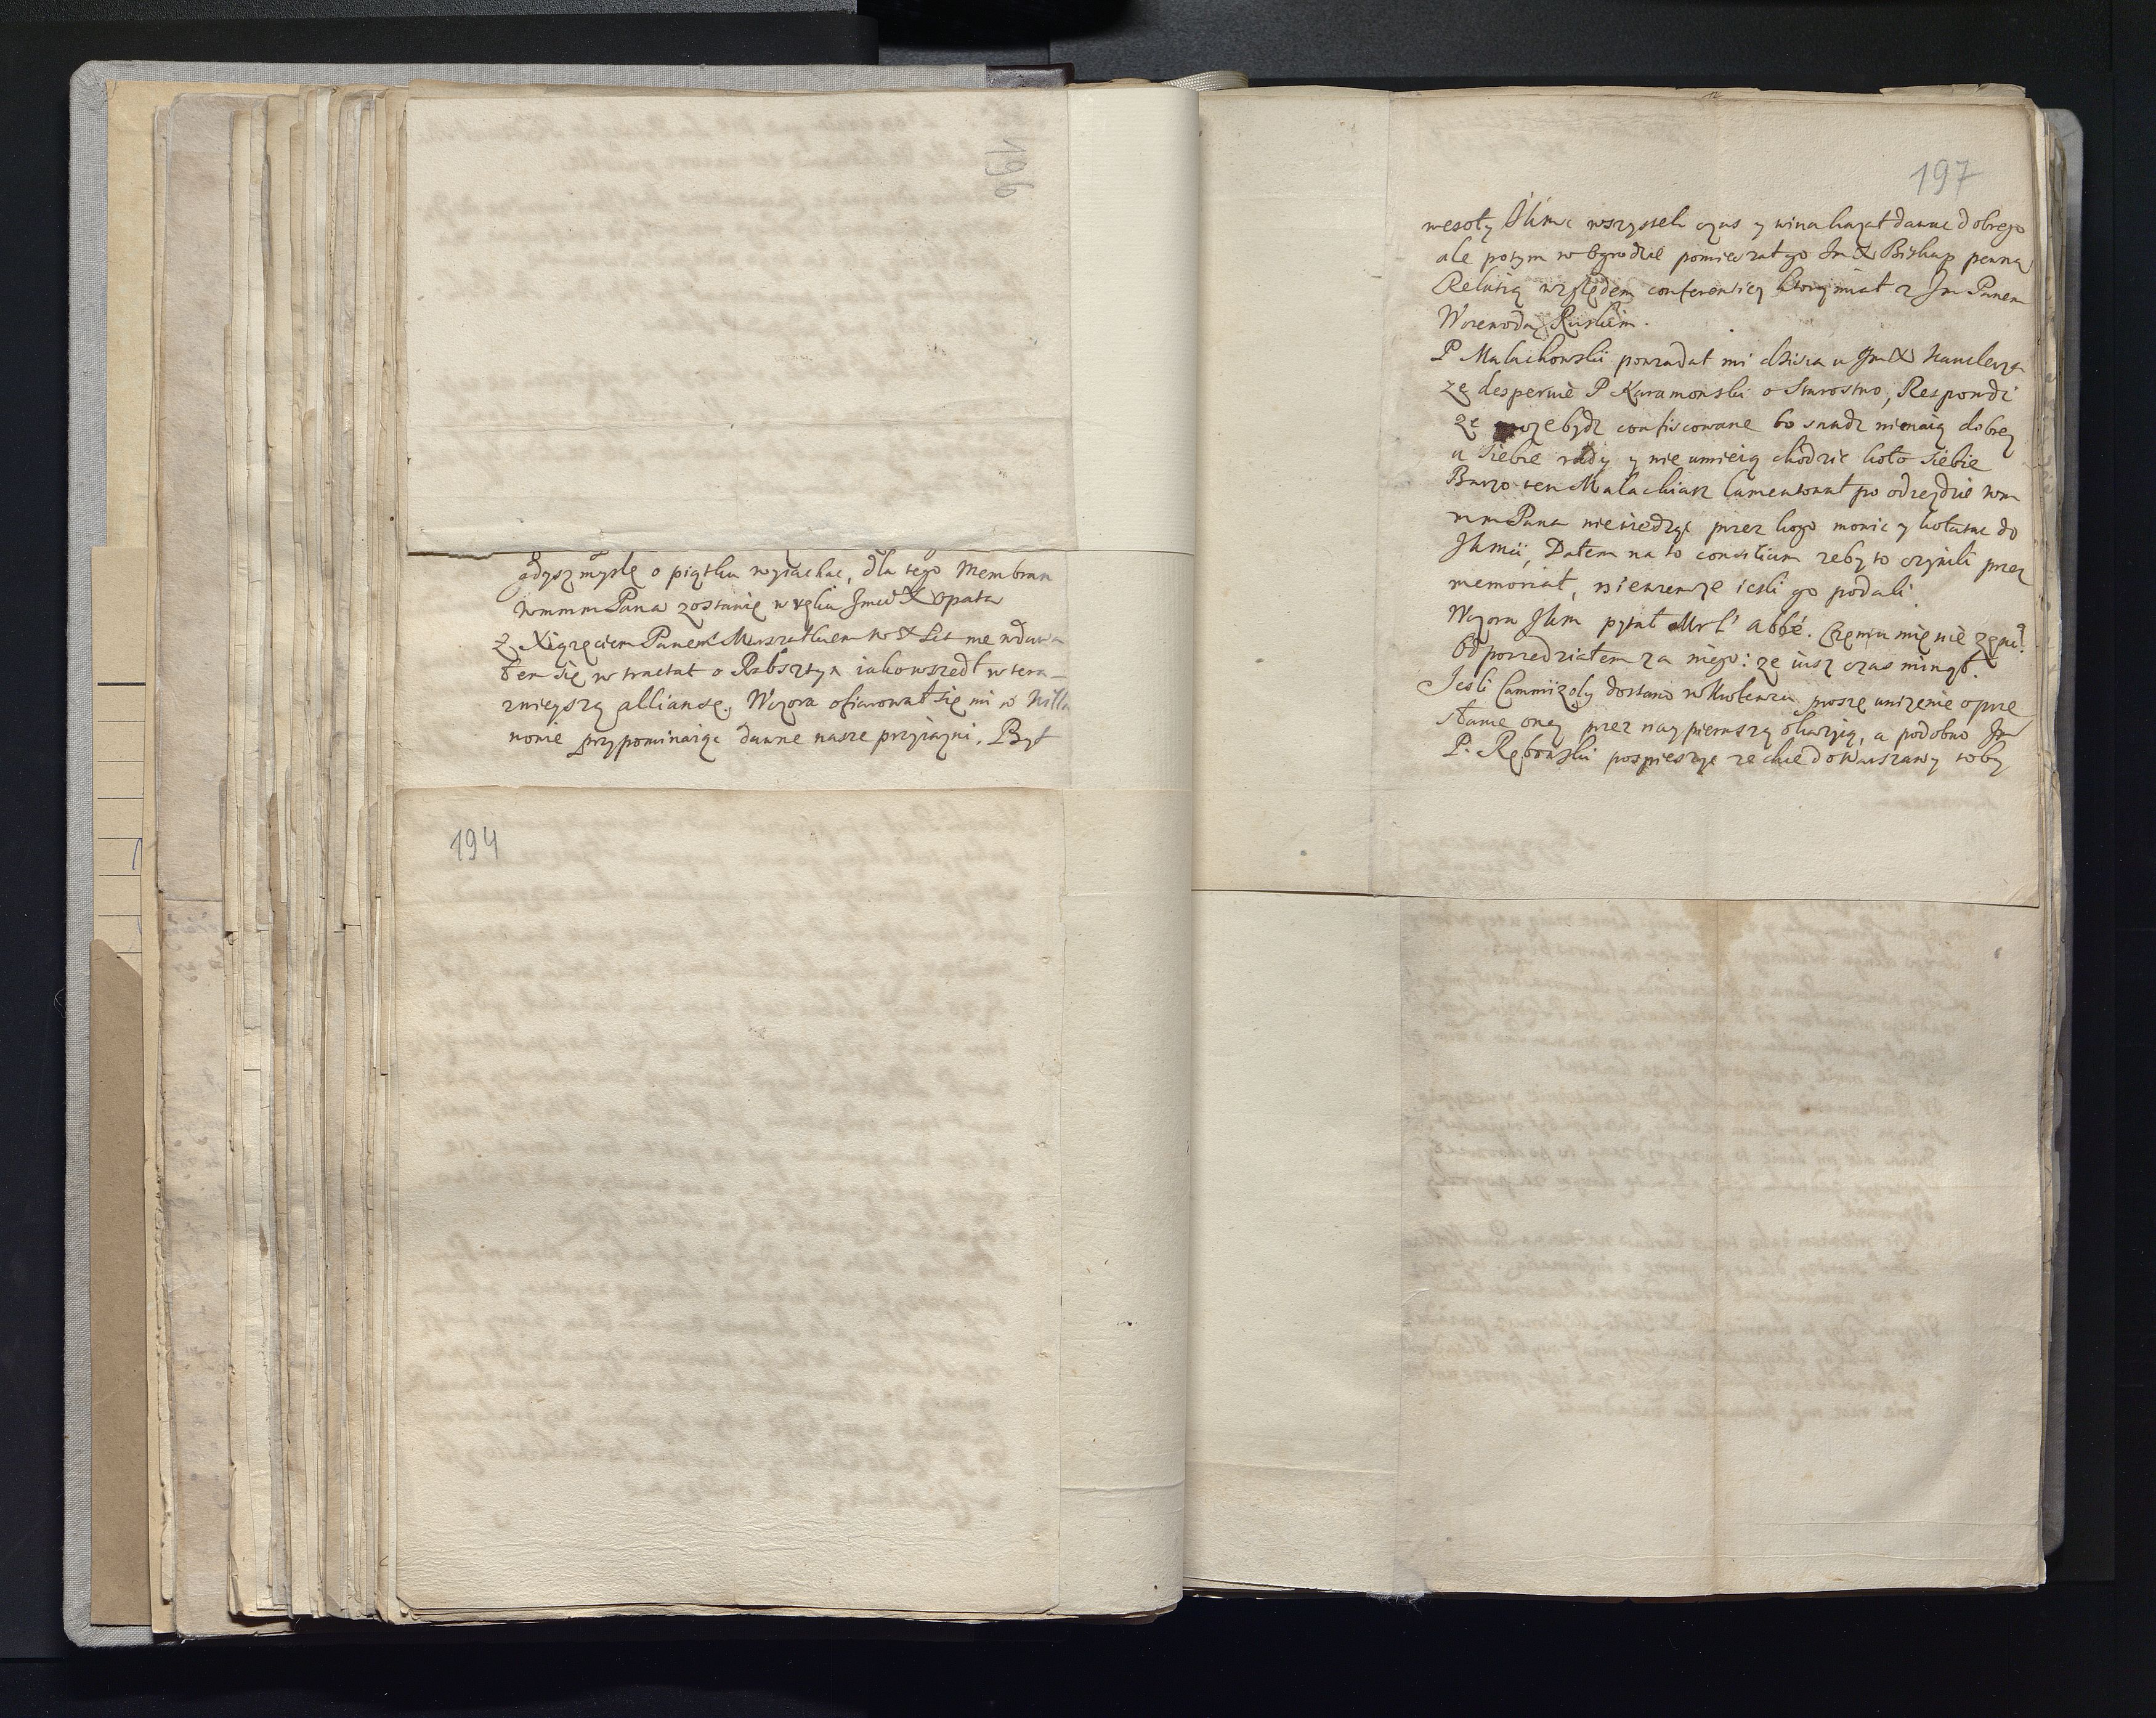 196
gdysz myslę o piątku wyiachac, dla tego Membran
wmmm Pana zostanię w ręku Jmci X Opata
Z Xiązęciem Panem Marszałkiem W X Lit nie wdawa
łem się w tractat o Rabsztyn iako wszedł w teraz
znieyszą alliansę. Wczora ofiarował się mi w Willa
nowie przypominaiąc dawne nasze przyiazni. Był
194
197
wesoły Jkmc wszystek czas y wina kazał dawac dobrego
ale potym w Ogrodzie pomieszał go Jm X Biskup pewną
Relatią względem conferentiey ktorą miał z Jm Panem
Woiewodą Ruskim.
P Malachowski powiadał mi dzisia u Jm X Kanclerza
ze desperuie P Karamonski o Starostwo, Respondi
ze moze bydz confiscowane bo snadz nie maią dobrey
u siebie rady y nie umieią chodzic koło siebie
Barzo ten Malachiasz lamentował po odieździe wm
mm Pana niewiedząc przez kogo mowic y kołatac do
Jkmci, Dałem na to consilium zeby to czynili przez
memoriał, niewiem ze iesli go podali
Wczora Jkm pytał Mr l' Abbé. Czemu mię nie zgna?
Odpowiedziałem za niego: ze iusz czas minął.
Jesli Cammizoly dostano w Krolewcu proszę unizenie o prze
słanie oney przez naypierwszą okazyią, a podobno Jm
P. Rębowski pospieszyc zechce do Warszawy toby